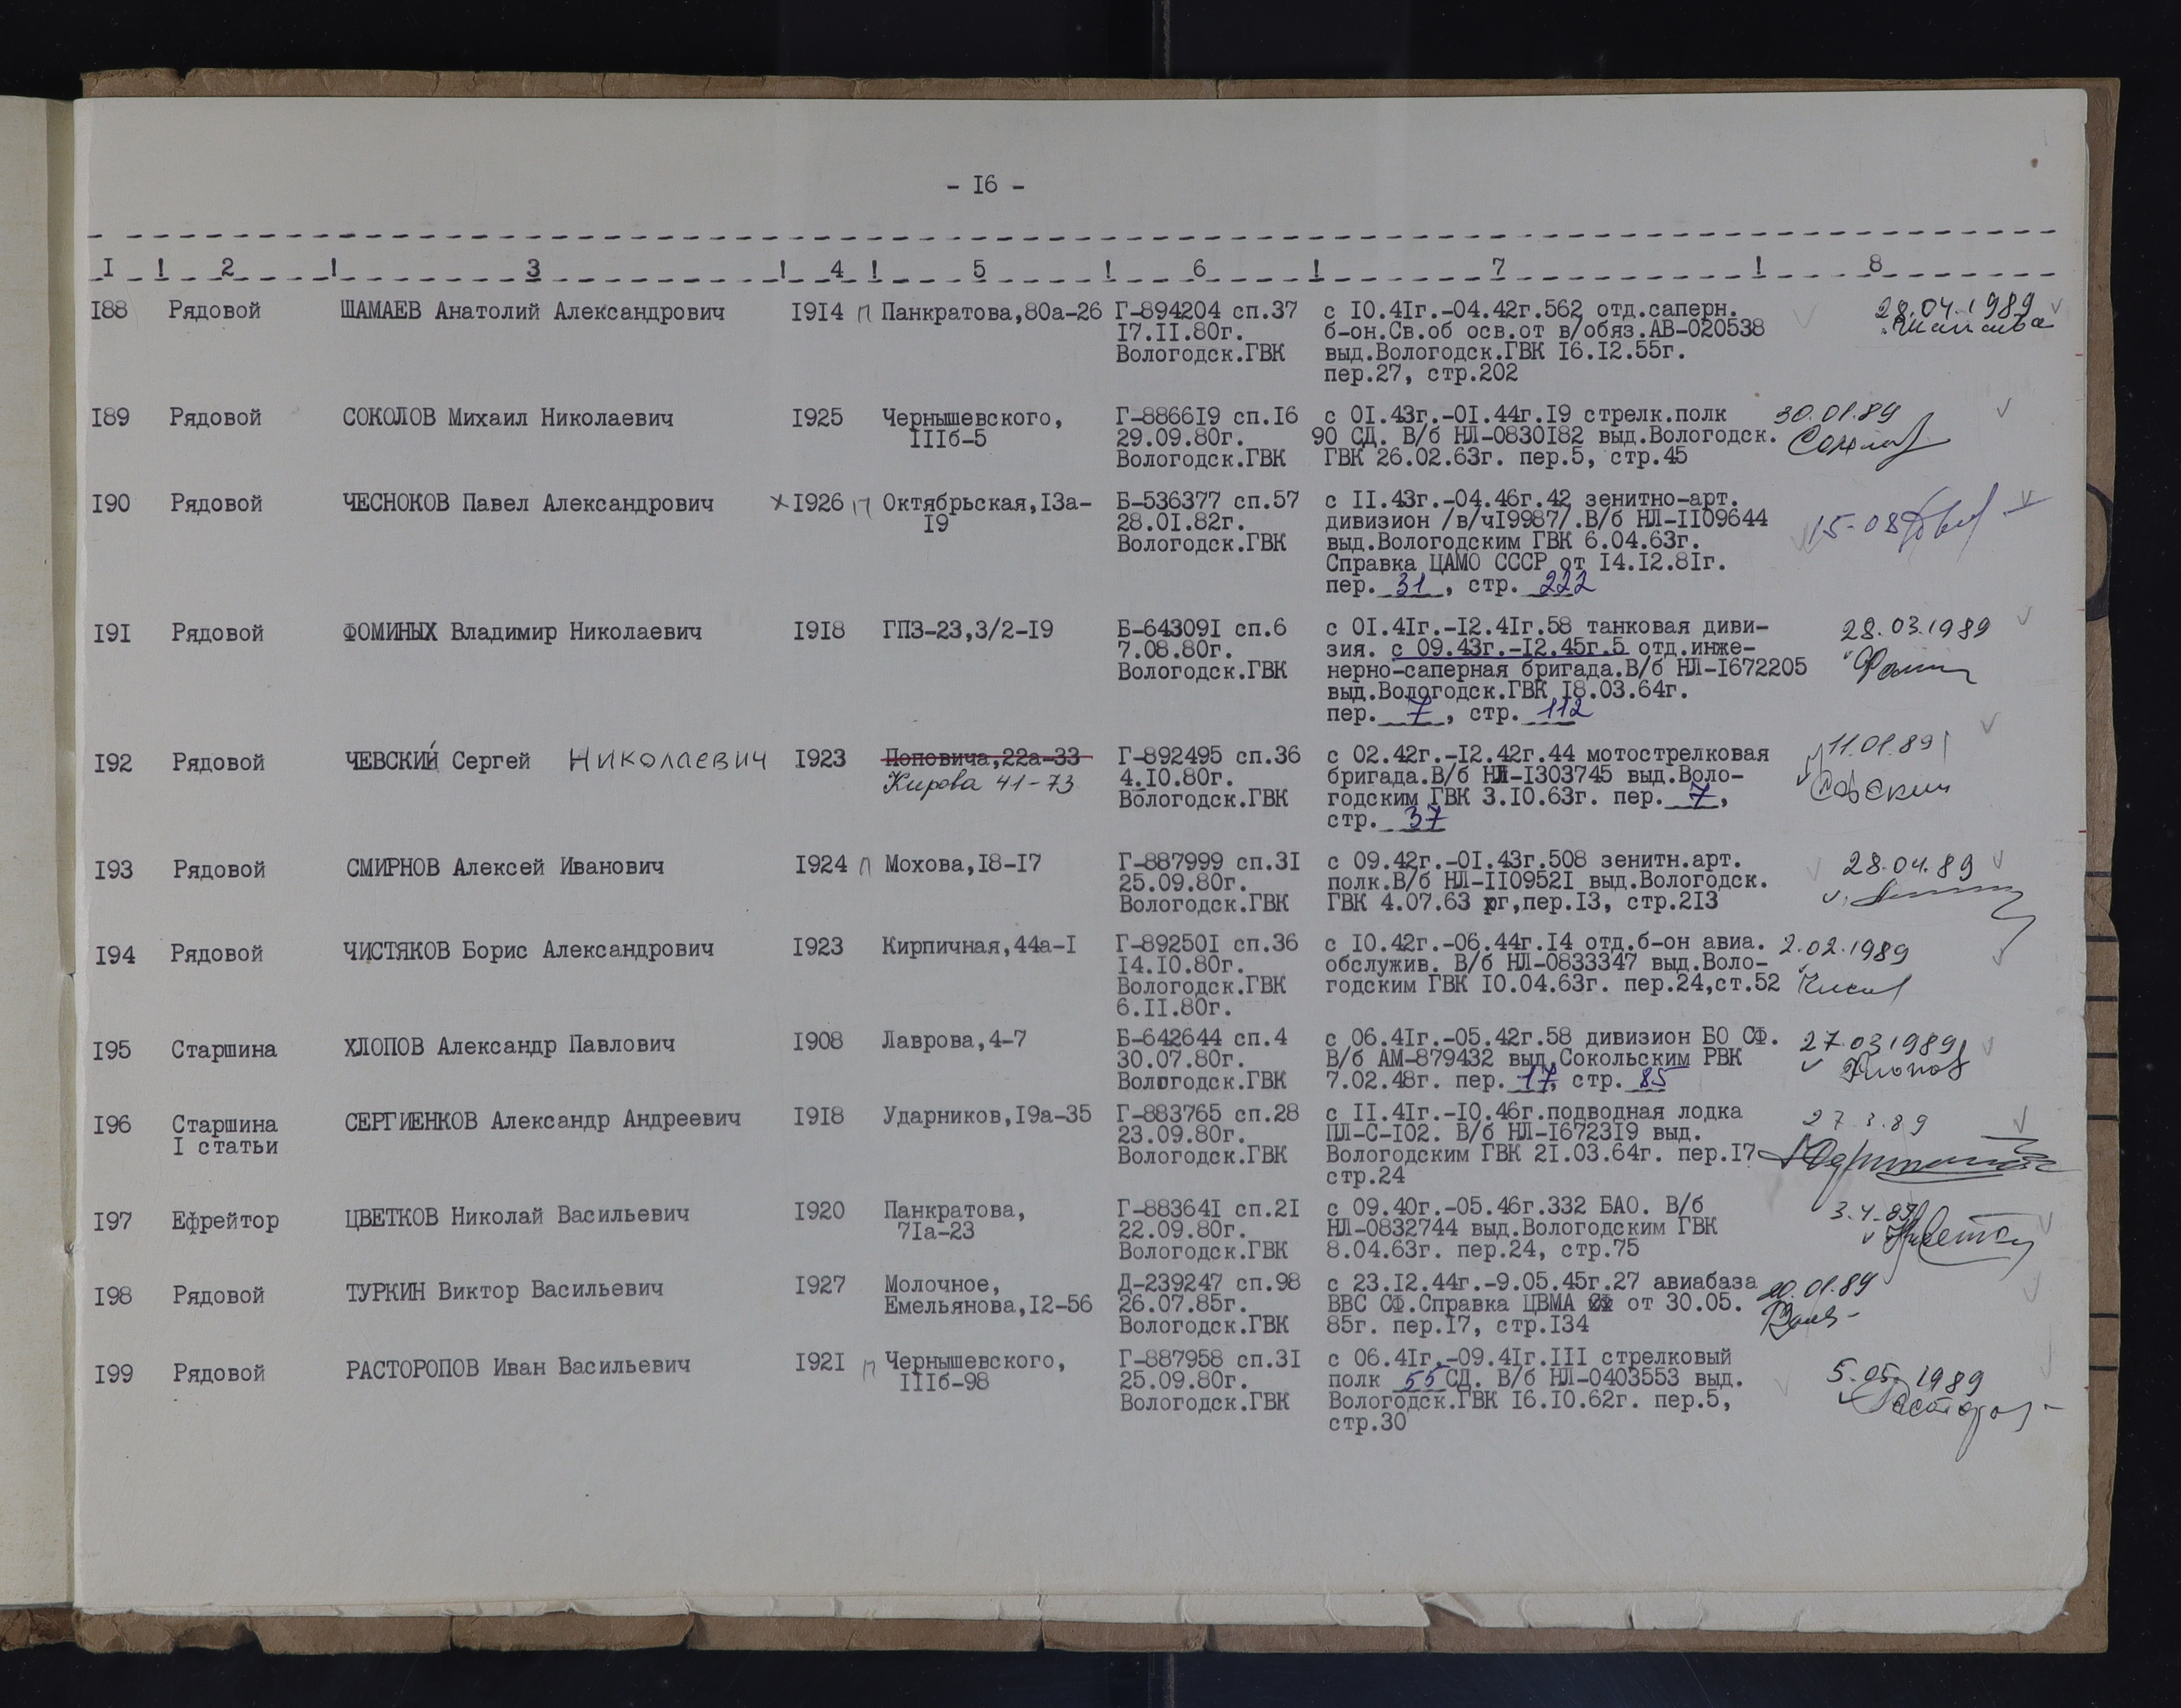 - I6 -
I ! 2 ! 3 ! 4 ! 5 ! 6 ! 7 ! 8
I88 Рядовой ШАМАЕВ Анатолий Александрович I9I4 П Панкратова,80а-26 Г-894204 сп.37 с I0.4Iг.-04.42г.562 отд.саперн. 28.04.1989
I7.II.80г. б-он.Св.об осв.от в/обяз.АВ-020538
Вологодск.ГВК выд.Вологодск.ГВК I6.I2.55г.
пер.27, стр.202
I89 Рядовой СОКОЛОВ Михаил Николаевич I925 Чернышевского, Г-8866I9 сп.I6 с 0I.43г.-0I.44г.I9 стрелк.полк 30.01.89
IIIб-5 29.09.80г. 90 СД. В/б НЛ-0830I82 выд.Вологодск.
Вологодск.ГВК ГВК 26.02.63г. пер.5, стр.45
I90 Рядовой ЧЕСНОКОВ Павел Александрович I926 П Октябрьская,I3а- Б-536377 сп.57 с II.43г.-04.46г.42 зенитно-арт.
I9 28.0I.82г. дивизион /в/чI9987/.В/б НЛ-II09644 15-08
Вологодск.ГВК выд.Вологодским ГВК 6.04.63г.
Справка ЦАМО СССР от I4.I2.8Iг.
пер. 31, стр. 222
I9I Рядовой ФОМИНЫХ Владимир Николаевич I9I8 ГПЗ-23,3/2-I9 Б-64309I сп.6 с 0I.4Iг.-I2.4Iг.58 танковая диви- 28.03.1989
7.08.80г. зия. с 09.43г.-I2.45г.5 отд.инже-
Вологодск.ГВК нерно-саперная бригада.В/б НЛ-I672205
выд.Вологодск.ГВК I8.03.64г.
пер. 7, стр. 112
I92 Рядовой ЧЕВСКИЙ Сергей Николаевич I923 Поповича,22а-33 Г-892495 сп.36 с 02.42г.-I2.42г.44 мотострелковая 11.01.89
Кирова 41-73 4.I0.80г. бригада.В/б НЛ-I303745 выд.Воло-
Вологодск.ГВК годским ГВК 3.I0.63г. пер. 7,
стр. 37
I93 Рядовой СМИРНОВ Алексей Иванович I924 П Мохова,I8-I7 Г-887999 сп.3I с 09.42г.-0I.43г.508 зенитн.арт. 28.04.89
25.09.80г. полк.В/б НЛ-II0952I выд.Вологодск.
Вологодск.ГВК ГВК 4.07.63 гг,пер.I3, стр.2I3
I94 Рядовой ЧИСТЯКОВ Борис Александрович I923 Кирпичная,44а-I Г-89250I сп.36 с I0.42г.-06.44г.I4 отд.б-он авиа. 2.02.1989
I4.I0.80г. обслужив. В/б НЛ-0833347 выд.Воло-
Вологодск.ГВК годским ГВК I0.04.63г. пер.24,ст.52
6.II.80г.
I95 Старшина ХЛОПОВ Александр Павлович I908 Лаврова,4-7 Б-642644 сп.4 с 06.4Iг.-05.42г.58 дивизион БО СФ. 27.03.1989
30.07.80г. В/б АМ-879432 выд.Сокольским РВК Хлопов
Вологодск.ГВК 7.02.48г. пер. 17, стр. 85
I96 Старшина СЕРГИЕНКОВ Александр Андреевич I9I8 Ударников,I9а-35 Г-883765 сп.28 с II.4Iг.-I0.46г.подводная лодка 27.3.89
I статьи 23.09.80г. ПЛ-С-I02. В/б НЛ-I6723I9 выд.
Вологодск.ГВК Вологодским ГВК 2I.03.64г. пер.I7
стр.24
I97 Ефрейтор ЦВЕТКОВ Николай Васильевич I920 Панкратова, Г-88364I сп.2I с 09.40г.-05.46г.332 БАО. В/б 3.4.89
7Iа-23 22.09.80г. НЛ-0832744 выд.Вологодским ГВК
Вологодск.ГВК 8.04.63г. пер.24, стр.75
I98 Рядовой ТУРКИН Виктор Васильевич I927 Молочное, Д-239247 сп.98 с 23.I2.44г.-9.05.45г.27 авиабаза 20.01.89
Емельянова,I2-56 26.07.85г. ВВС СФ.Справка ЦВМА от 30.05.
Вологодск.ГВК 85г. пер.I7, стр.I34
I99 Рядовой РАСТОРОПОВ Иван Васильевич I92I П Чернышевского, Г-887958 сп.3I с 06.4Iг.-09.4Iг.III стрелковый 5.05.1989
IIIб-98 25.09.80г. полк 55 СД. В/б НЛ-0403553 выд.
Вологодск.ГВК Вологодск.ГВК I6.I0.62г. пер.5,
стр.30